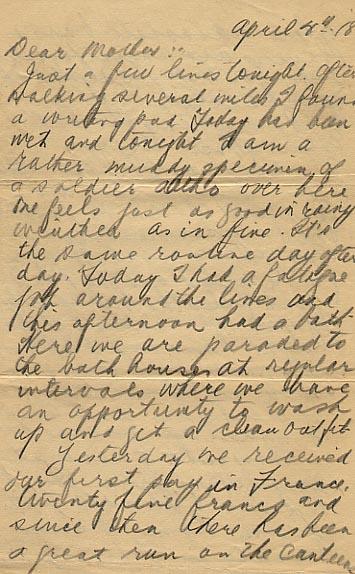 April 8th. 18
Dear Mother :-
Just a few lines tonight. After
walking several miles I found
a writing pad. Today has been
wet and tonight I am a
rather muddy specimen of
a soldier altho over here
one feels just as good in rainy
weather as in fine. It's
the same routine day after
day. Today I had a fatigue
job around the lines and
this afternoon had a bath.
Here we are paraded to
the bath houses at regular
intervals where we have
an opportunity to wash
up and get a clean outfit
Yesterday we received
our first pay in France.
Twenty five francs and
since then there has been
a great run on the canteen